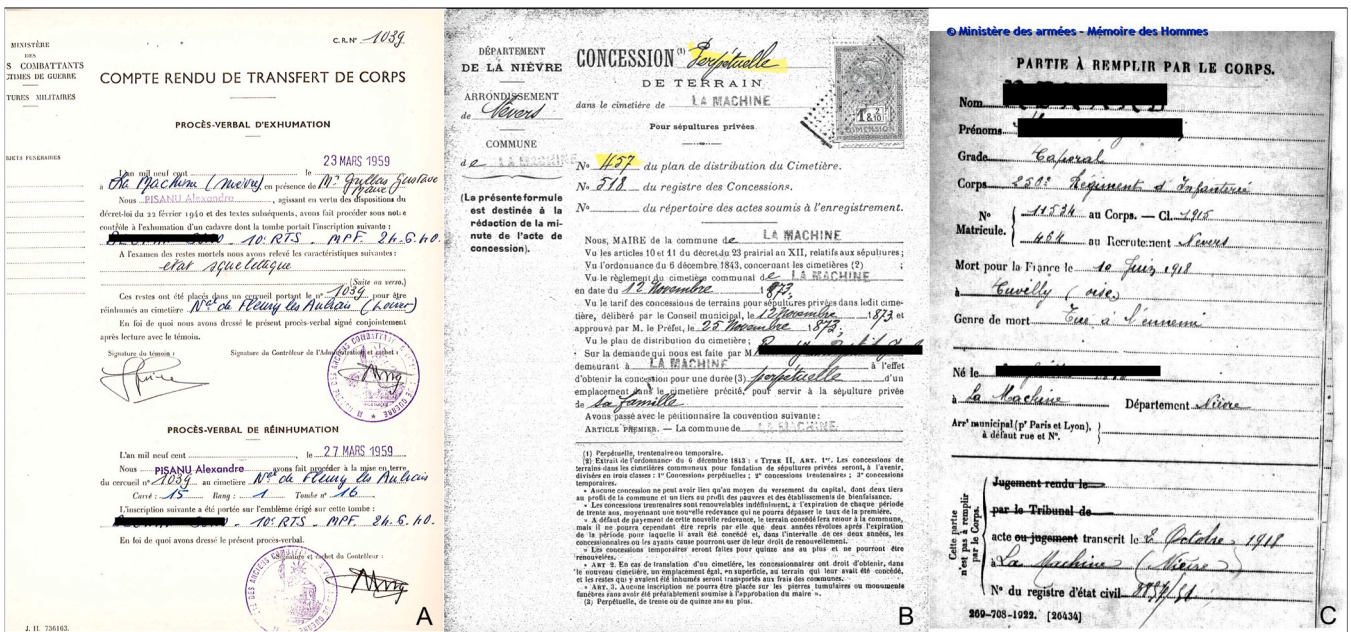 C. R. N° 1039
MINISTÈRE
DES
S COMBATTANTS
CTIMES DE GUERRE
TURES MILITAIRES
BJETS FUNÉRAIRES
COMPTE RENDU DE TRANSFERT DE CORPS
PROCÈS-VERBAL D'EXHUMATION
23 MARS 1959
L'an mil neuf cent le
à La Machine (Nièvre) en présence de Mr Gustave
Nous PISANU Alexandre, agissant en vertu des dispositions du
décret-loi du 22 février 1940 et des textes subséquents, avons fait procéder sous notre
contrôle à l'exhumation d'un cadavre dont la tombe portait l'inscription suivante :
10e RTS. MPF. 24.6.40.
A l'examen des restes mortels nous avons relevé les caractéristiques suivantes :
état squelettique
(Suite au verso.)
Ces restes ont été placés dans un cercueil portant le n° 1039 pour être
réinhumés au cimetière Nal de Fleury les Aubrais (Loiret)
En foi de quoi nous avons dressé le présent procès-verbal signé conjointement
après lecture avec le témoin.
Signature du témoin : Signature du Contrôleur de l'Administration et cachet :
PROCÈS-VERBAL DE RÉINHUMATION
L'an mil neuf cent , le 27 MARS 1959
Nous PISANU Alexandre avons fait procéder à la mise en terre
du cercueil n° 1039 au cimetière Nal de Fleury les Aubrais
Carré : 15 Rang : 1 Tombe n° 16
L'inscription suivante a été portée sur l'emblème érigé sur cette tombe :
10e RTS. MPF. 24.6.40.
En foi de quoi avons dressé le présent procès-verbal.
Signature et cachet du Contrôleur :
J. U. 756163.
A
DÉPARTEMENT
DE LA NIÈVRE
ARRONDISSEMENT
de Nevers
COMMUNE
de LA MACHINE
(La présente formule
est destinée à la
rédaction de la mi-
nute de l'acte de
concession).
CONCESSION (1) Perpétuelle
DE TERRAIN
dans le cimetière de LA MACHINE
Pour sépultures privées
DIMENSION
N° 457 du plan de distribution du Cimetière.
N° 518 du registre des Concessions.
N° du répertoire des actes soumis à l'enregistrement.
Nous, MAIRE de la commune de LA MACHINE
Vu les articles 10 et 11 du décret du 23 prairial an XII, relatifs aux sépultures ;
Vu l'ordonnance du 6 décembre 1843, concernant les cimetières (2) ;
Vu le règlement du cimetière communal de LA MACHINE
en date du 12 Novembre 1873,
Vu le tarif des concessions de terrains pour sépultures privées dans ledit cime-
tière, délibéré par le Conseil municipal, le 12 Novembre 1873 et
approuvé par M. le Préfet, le 25 Novembre 1873,
Vu le plan de distribution du cimetière ;
Sur la demande qui nous est faite par M
demeurant à LA MACHINE à l'effet
d'obtenir la concession pour une durée (3) perpétuelle d'un
emplacement dans le cimetière précité, pour servir à la sépulture privée
de sa famille
Avons passé avec le pétitionnaire la convention suivante :
ARTICLE PREMIER. — La commune de LA MACHINE
(1) Perpétuelle, trentenaire ou temporaire.
(2) Extrait de l'ordonnance du 6 décembre 1843 : « TITRE II, ART. 1er. Les concessions de
terrains dans les cimetières communaux pour fondation de sépultures privées seront, à l'avenir,
divisées en trois classes : 1° Concessions perpétuelles ; 2° concessions trentenaires ; 3° concessions
temporaires.
« Aucune concession ne peut avoir lieu qu'au moyen du versement du capital, dont deux tiers
au profit de la commune et un tiers au profit des pauvres et des établissements de bienfaisance.
« Les concessions trentenaires sont renouvelables indéfiniment, à l'expiration de chaque période
de trente ans, moyennant une nouvelle redevance qui ne pourra dépasser le taux de la première.
« A défaut de payement de cette nouvelle redevance, le terrain concédé fera retour à la commune,
mais il ne pourra cependant être repris par elle que deux années révolues après l'expiration
de la période pour laquelle il avait été concédé et, dans l'intervalle de ces deux années, les
concessionnaires ou les ayants cause pourront user de leur droit de renouvellement.
« Les concessions temporaires seront faites pour quinze ans au plus et ne pourront être
renouvelées.
« ART 2. En cas de translation d'un cimetière, les concessionnaires ont droit d'obtenir, dans
le nouveau cimetière, un emplacement égal, en superficie, au terrain qui leur avait été concédé,
et les restes qui y avaient été inhumés seront transportés aux frais des communes.
« ART. 3. Aucune inscription ne pourra être placée sur les pierres tumulaires ou monuments
funèbres sans avoir été préalablement soumise à l'approbation du maire ».
(3) Perpétuelle, de trente ou de quinze ans au plus.
B
© Ministère des armées - Mémoire des Hommes
PARTIE À REMPLIR PAR LE CORPS.
Nom
Prénoms
Grade Caporal
Corps 250e Régiment d'Infanterie
N° Matricule. 11534 au Corps. — Cl. 1915
464 au Recrutement Nevers
Mort pour la France le 10 Juin 1918
à Cuvilly (oise)
Genre de mort Tué à l'ennemi
Né le
à La Machine Département Nièvre
Arrt municipal (pr Paris et Lyon),
à défaut rue et N°.
Cette partie
n'est pas à remplir
par le Corps.
Jugement rendu le
par le Tribunal de
acte ou jugement transcrit le 2 Octobre 1918
à La Machine (Nièvre)
N° du registre d'état civil
269-708-1922. [26434]
C